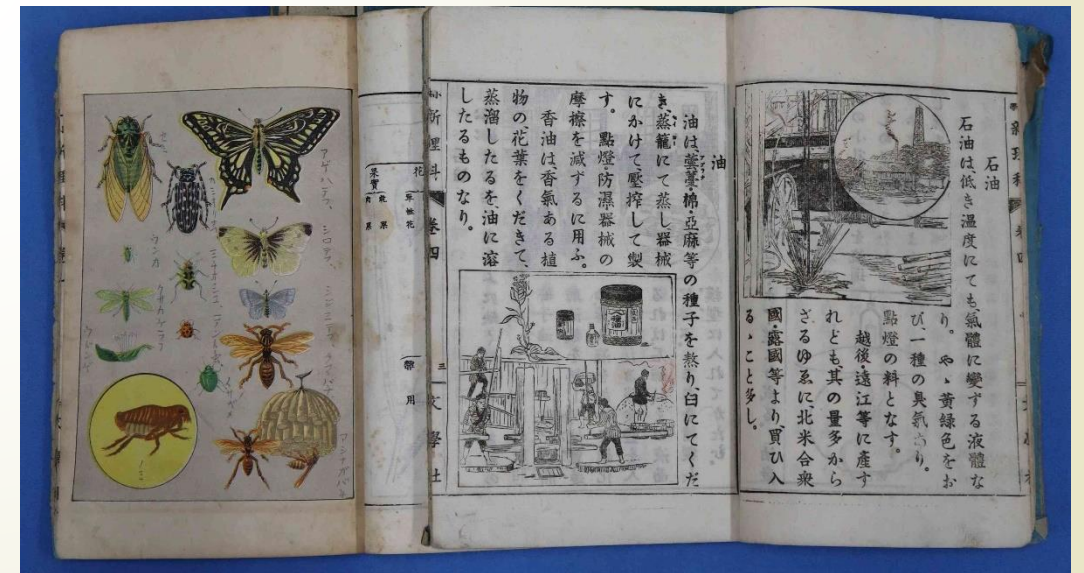 石油
石油は、低き温度にても、氣體に變ずる液體な
り。やゝ黄緑色をお
び、一種の臭氣あり。
點燈の料となす。
越後・遠江等に產す
れども、其の量多から
ざるゆゑに、北米合衆
國・露國等より、買ひ入
るゝこと多し。
油
油は、蕓薹・棉・亞麻等の種子を熬り、臼にてくだ
き、蒸籠にて蒸し、器械
にかけて、壓搾して製
す。點燈・防濕・器械の
摩擦を減ずるに用ふ。
香油は香氣ある植
物の花葉をくだきて、
蒸溜したるを、油に溶
したるものなり。
種油
理科 卷四
三
文學社
花
単性花
果實
乾果
肉果
雜用
アゲハテフ
シロテフ
セミ
ウンカ
ノミ